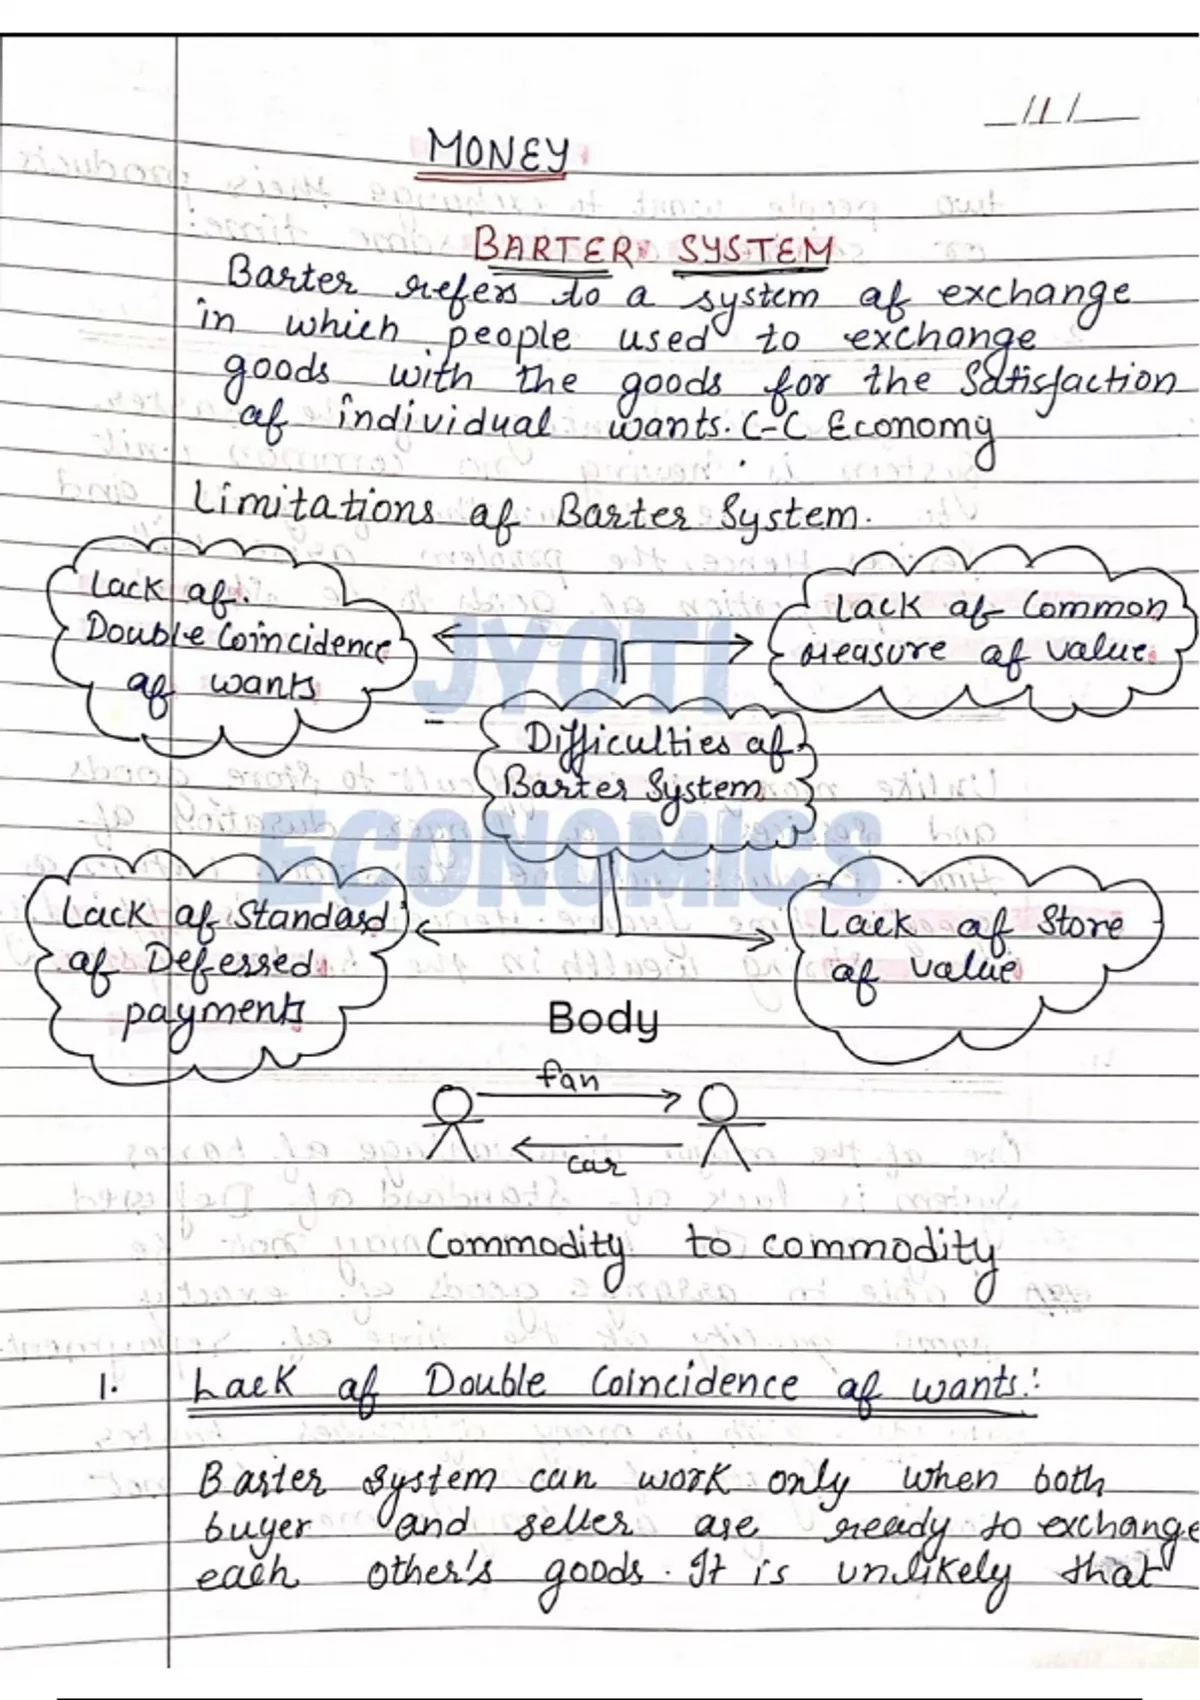 MONEY
BARTER SYSTEM
Barter refers to a system of exchange
in which people used to exchange
goods with the goods for the Satisfaction
of individual wants. C-C Economy
Limitations of Barter System.
Lack of
Double Coincidence
of wants
Lack of Common
measure of value
JYOTI
Difficulties of
Barter System
ECONOMICS
Lack of Standard
of Deferred
payments
Lack of Store
of value
Body
fan
car
Commodity to commodity
1. Lack of Double Coincidence of wants:
Barter System can work only when both
buyer and seller are ready to exchange
each other's goods. It is unlikely that